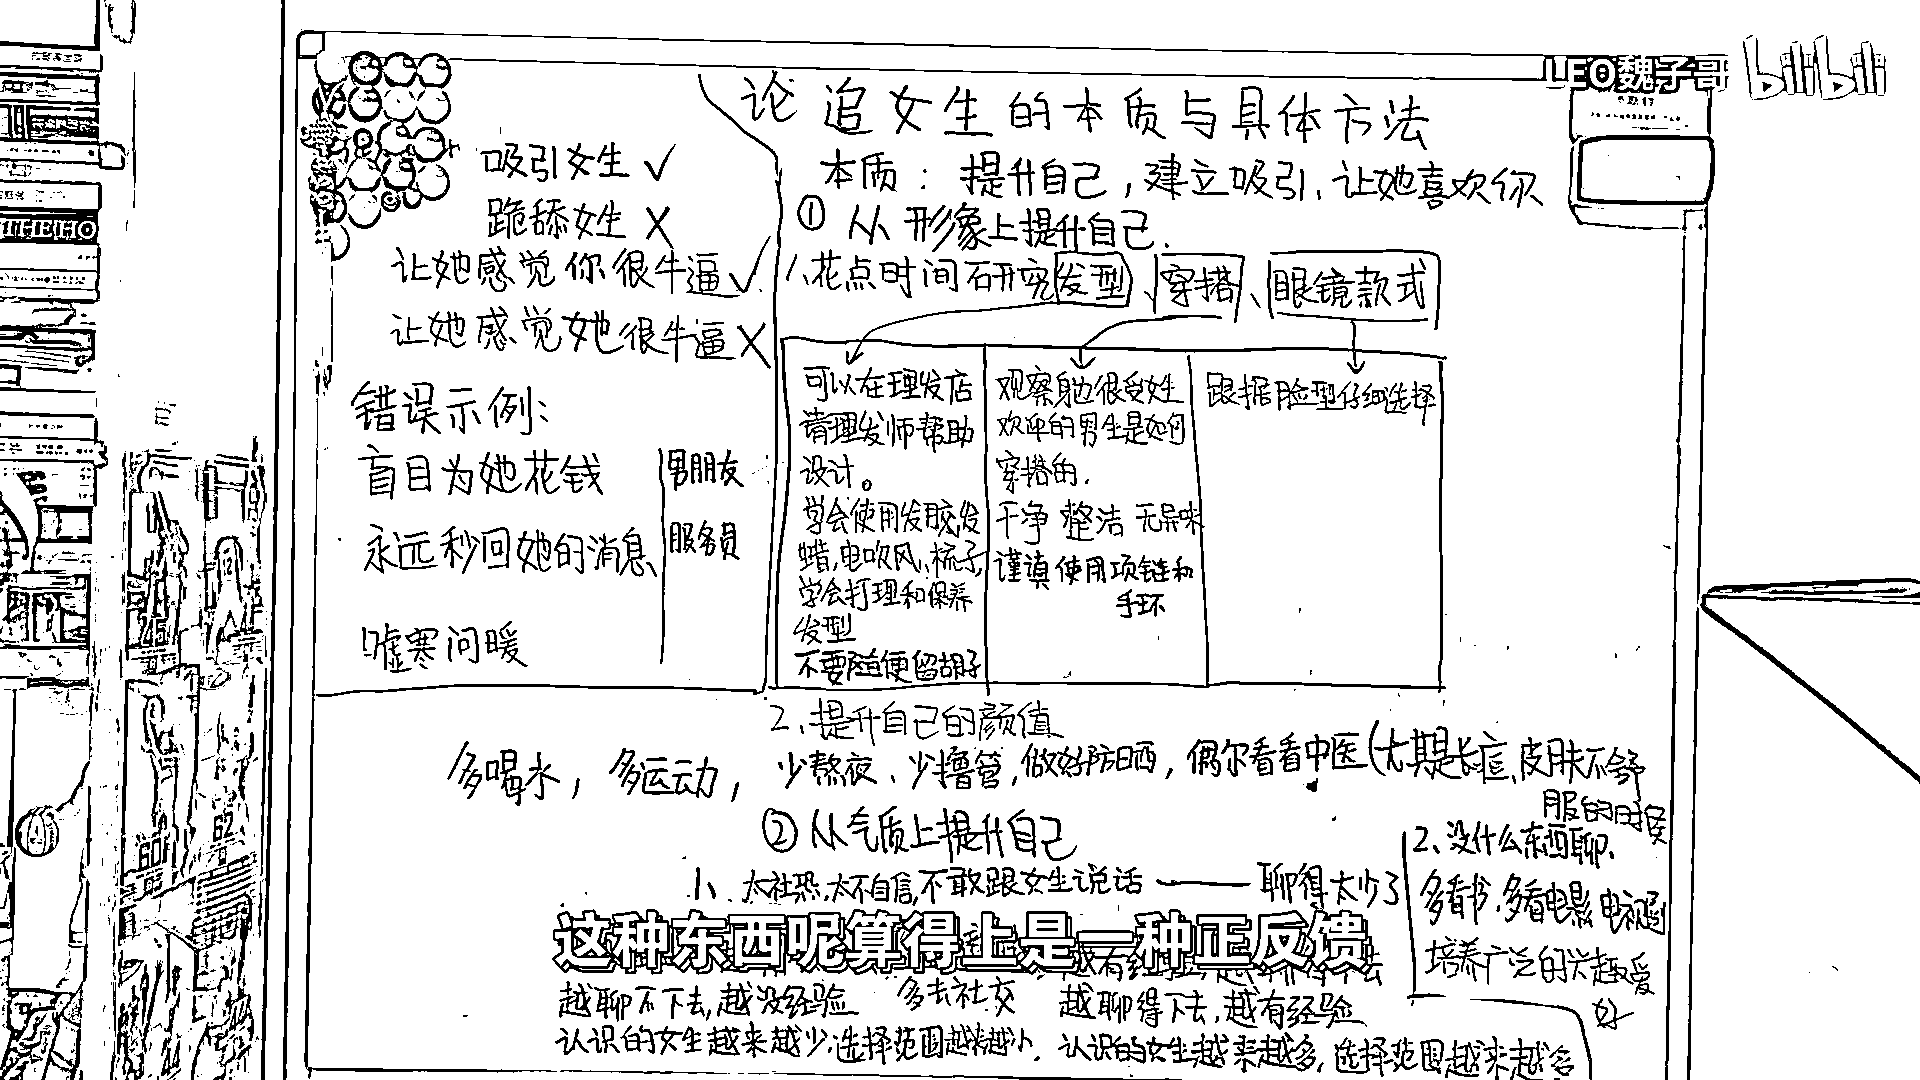 LEO魏子哥 bilibili
论追女生的本质与具体方法
吸引女生 ✓
跪舔女生 X
让她感觉你很牛逼 ✓
让她感觉她很牛逼 X
错误示例:
盲目为她花钱
永远秒回她的消息
嘘寒问暖
男朋友
服务员
本质：提升自己，建立吸引，让她喜欢你
① 从形象上提升自己.
1、花点时间研究发型、穿搭、眼镜款式
可以在理发店
请理发师帮助
设计。
学会使用发胶,发
蜡,电吹风、梳子,
学会打理和保养
发型
不要随便留胡子
观察身边很受女生
欢迎的男生是如何
穿搭的.
干净 整洁 无异味
谨慎使用项链和
手环
跟据脸型仔细选择
2、提升自己的颜值
多喝水，多运动，少熬夜、少撸管,做好防晒，偶尔看看中医(尤其是长痘、皮肤不舒
服的时候
② 从气质上提升自己
1、太社恐,太不自信,不敢跟女生说话 —— 聊得太少了
2、没什么东西聊.
多看书.多看电影,电视剧
培养广泛的兴趣爱
好
这种东西呢算得上是一种正反馈
越聊不下去,越没经验
多去社交
越聊得下去,越有经验
认识的女生越来越少,选择范围越来越小.
认识的女生越来越多,选择范围越来越多
THEHO